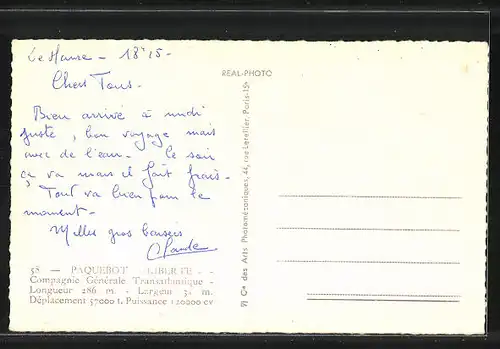 Le Havre - 18h15 -
Chers Tous -
Bien arrivé à midi
juste, bon voyage mais
avec de l'eau - le soir
ça va mais il fait frais -
Tout va bien pour le
moment -
Milles gros baisers
Claude
58 — PAQUEBOT LIBERTE - -
Compagnie Générale Transatlantique -
Longueur 286 m. - Largeur m.
Déplacement 57000 t. Puissance 120000 cv
REAL-PHOTO
Cie des Arts Photomécaniques, 44, rue Letellier, Paris-15e